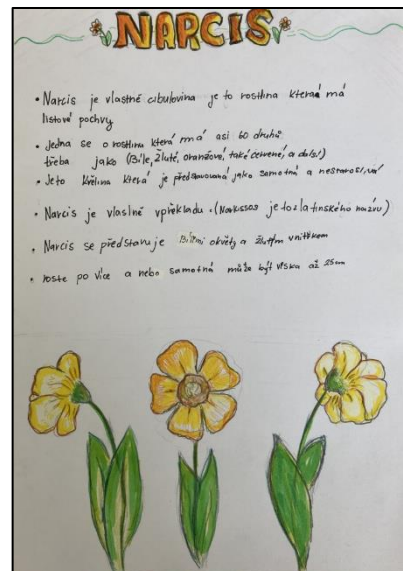 NARCIS
• Narcis je vlastně cibulovina je to rostlina kteraá má
listové pochvy.
• Jedna se o rostlina která má asi 60 druhů
třeba jako (Bíle, žluté, oranžové, také červené, a další)
• Jeto květina která je představovaná jako samotná a
• Narcis je vlaslně vpřekladu. (Narkissos je to z latinského názvu)
• Narcis se představuje Bílími okvěty a žlutým vnitřkem
• roste po více a nebo samotná může být víska až 25cm